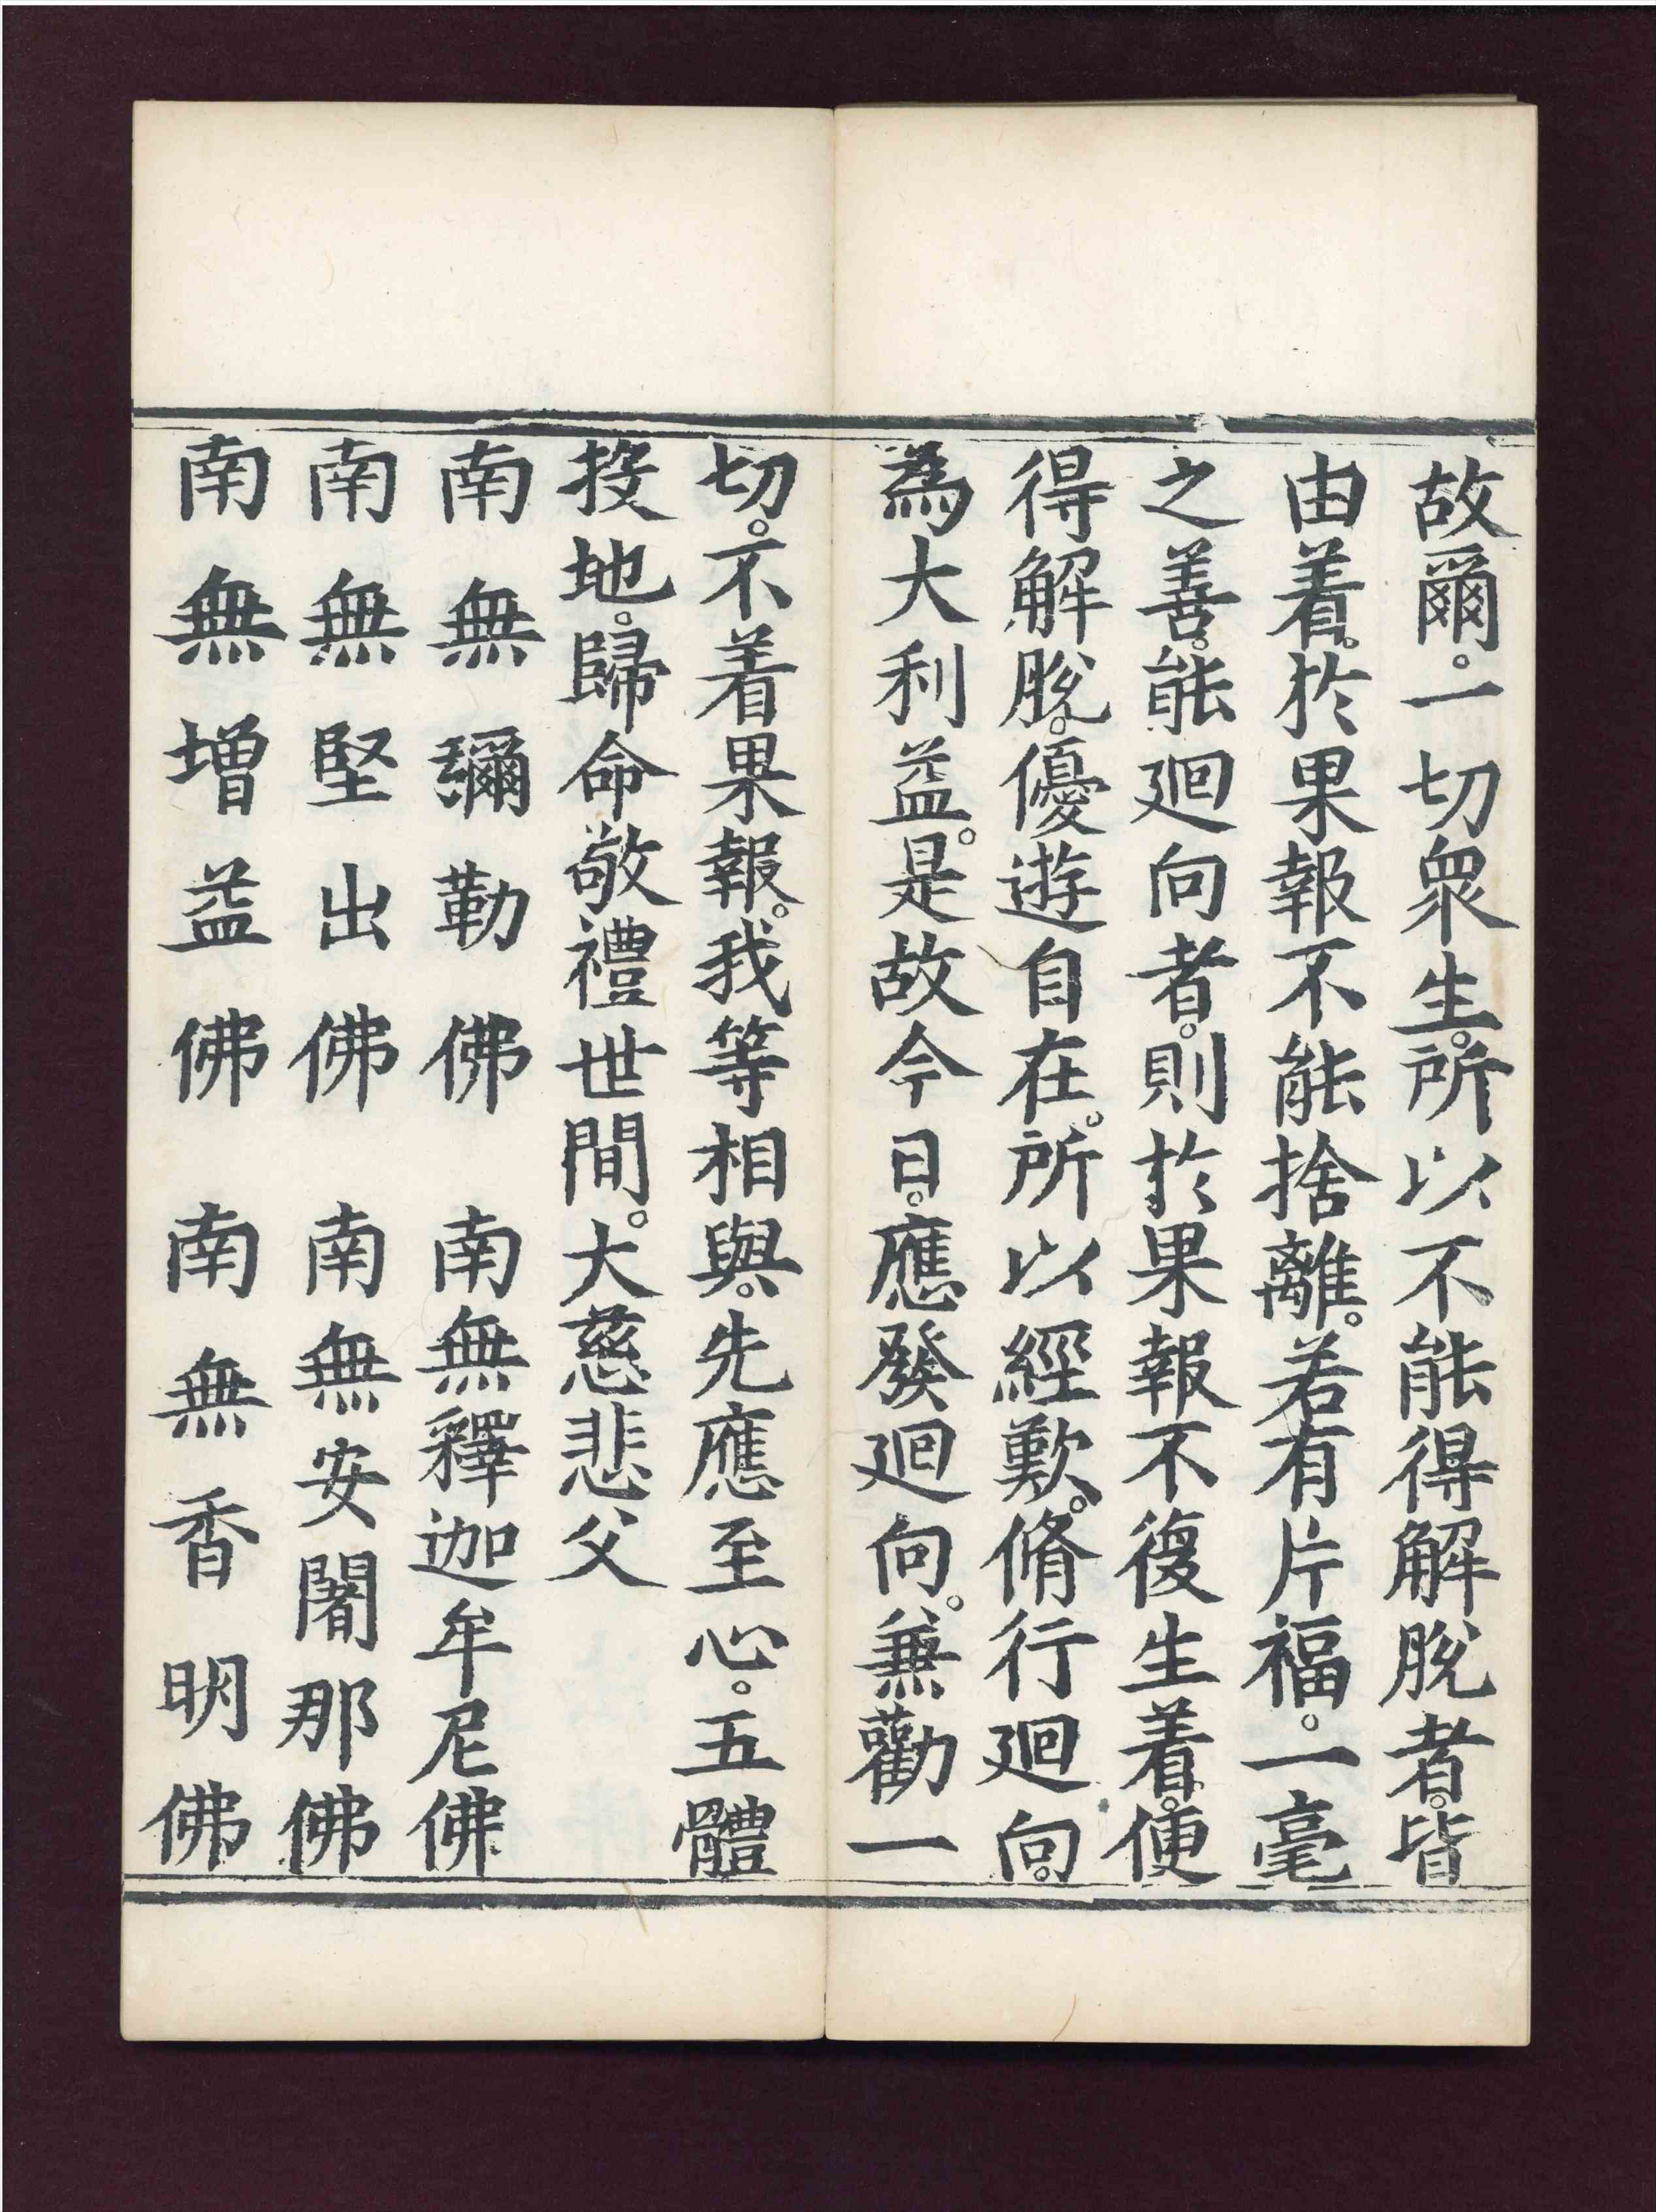 故爾。一切衆生。所以不能得解脫者。皆
由着。於果報不能捨離。若有片福。一毫
之善。能廻向者。則於果報不復生着。便
得解脫。優遊自在。所以經歎。脩行廻向。
為大利益。是故今日。應發廻向。兼勸一
切。不着果報。我等相與。先應至心。五體
投地。歸命敬禮世間。大慈悲父
南無彌勒佛 南無釋迦牟尼佛
南無堅出佛 南無安闍那佛
南無增益佛 南無香明佛